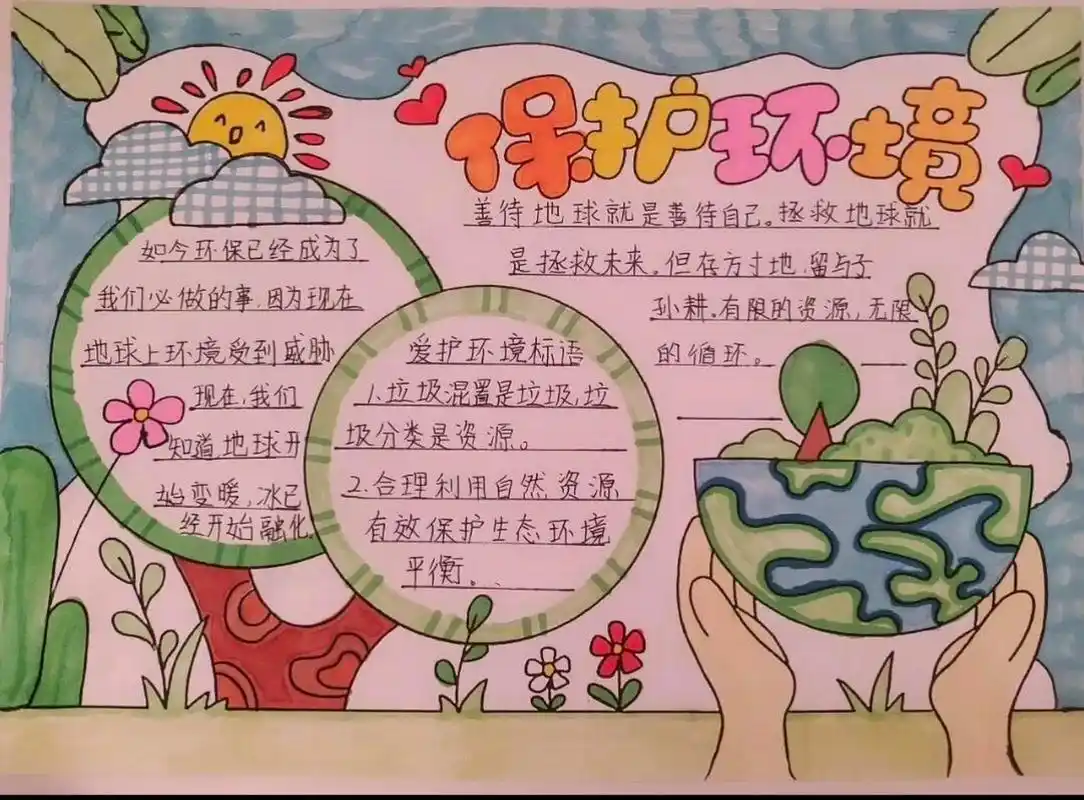 保护环境
善待地球就是善待自己。拯救地球就
是拯救未来。但存方寸地,留与子
孙耕。有限的资源,无限
的循环。
如今环保已经成为了
我们必做的事,因为现在
地球上环境受到威胁
现在,我们
知道地球开
始变暖,冰已
经开始融化。
爱护环境标语
1.垃圾混置是垃圾,垃
圾分类是资源。
2.合理利用自然资源,
有效保护生态环境
平衡。